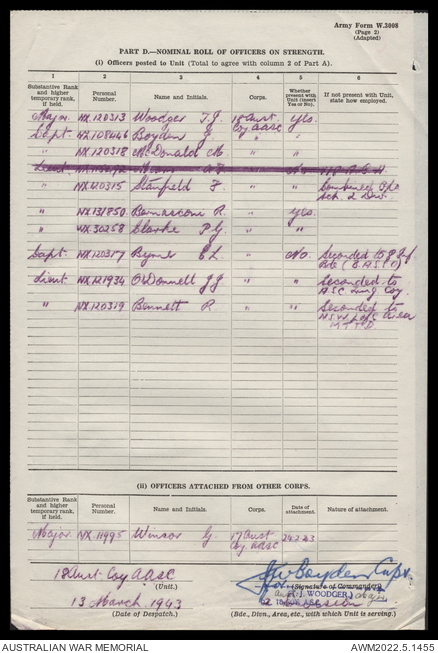 Army Form W.3008
(Page 2)
(Adapted)
PART D.—NOMINAL ROLL OF OFFICERS ON STRENGTH.
(i) Officers posted to Unit (Total to agree with column 2 of Part A).
1 2 3 4 5 6
Substantive Rank and higher temporary rank, if held. Personal Number. Name and Initials. Corps. Whether present with Unit (insert Yes or No). If not present with Unit, state how employed.
Major NX.120313 Woodger T.J. 18 Aust Coy AASC Yes.
Capt. NX108446 Boyden J. " "
" NX.120318 McDonald M. " "
Lieut
" NX120315 Stanfield F. " " Combined Ops Sch. 2 Div.
" NX131850 Bernasconi R. " Yes.
" NX.30258 Clarke P.G. " "
Capt. NX120317 Byrnes E.L. " No. Seconded to
Lieut. NX.121934 O'Donnell J.J. " " Seconded to
" NX.120319 Bennett R. " " Seconded to
(ii) OFFICERS ATTACHED FROM OTHER CORPS.
Substantive Rank and higher temporary rank, if held. Personal Number. Name and Initials. Corps. Date of attachment. Nature of attachment.
Major NX.11995 Winsor G. 17 Aust Coy. AASC 24.2.43
18 Aust Coy AASC
(Unit.)
JW Boyden Capt.
(Signature of Commander)
(T. J. WOODGER)
13 March 1943
(Date of Despatch.)
(Bde., Divn., Area, etc., with which Unit is serving.)
AUSTRALIAN WAR MEMORIAL
AWM2022.5.1455